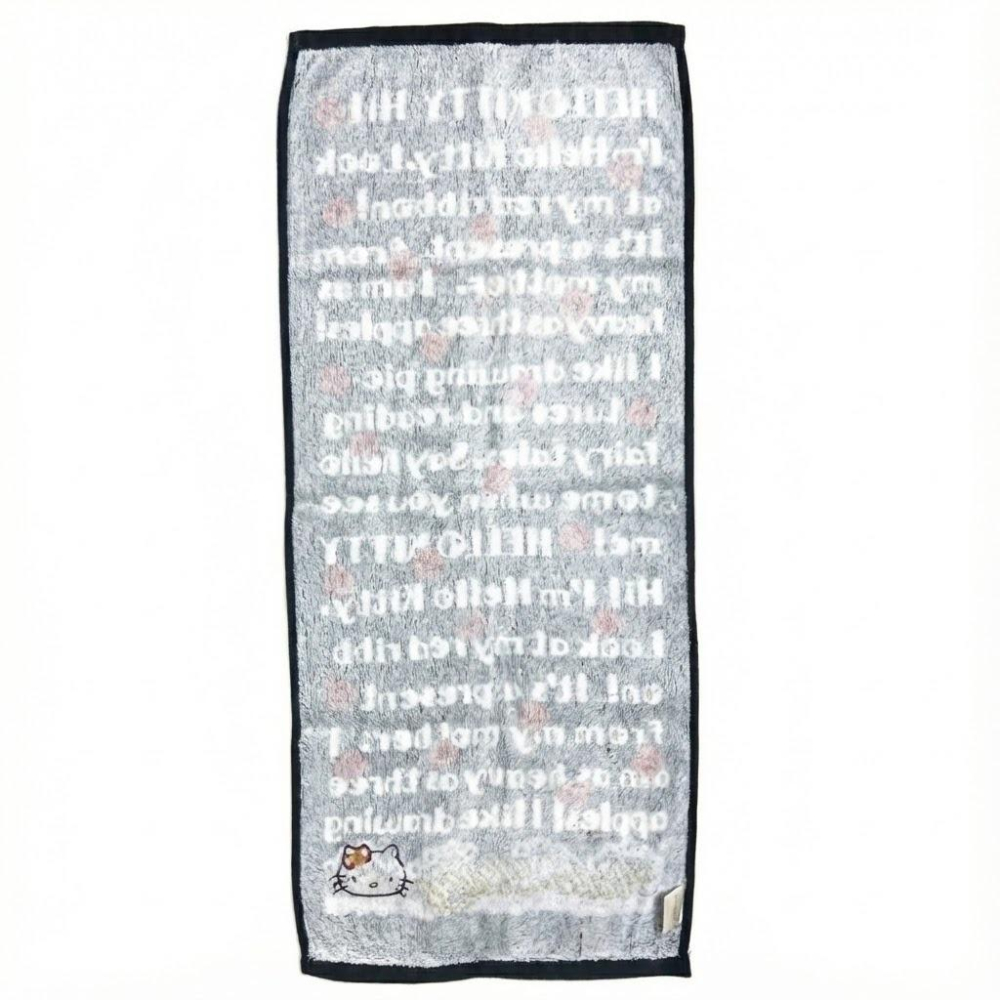 HELLO KITTY Hi!
I'm Hello Kitty. Look
at my red ribbon!
It's a present from
my mother. I am as
heavy as three apples!
I like drawing pic
tures and reading
fairy tales. Say hello
to me when you see
me! HELLO KITTY
Hi! I'm Hello Kitty.
Look at my red ribb
on! It's a present
from my mother. I
am as heavy as three
apples! I like drawing